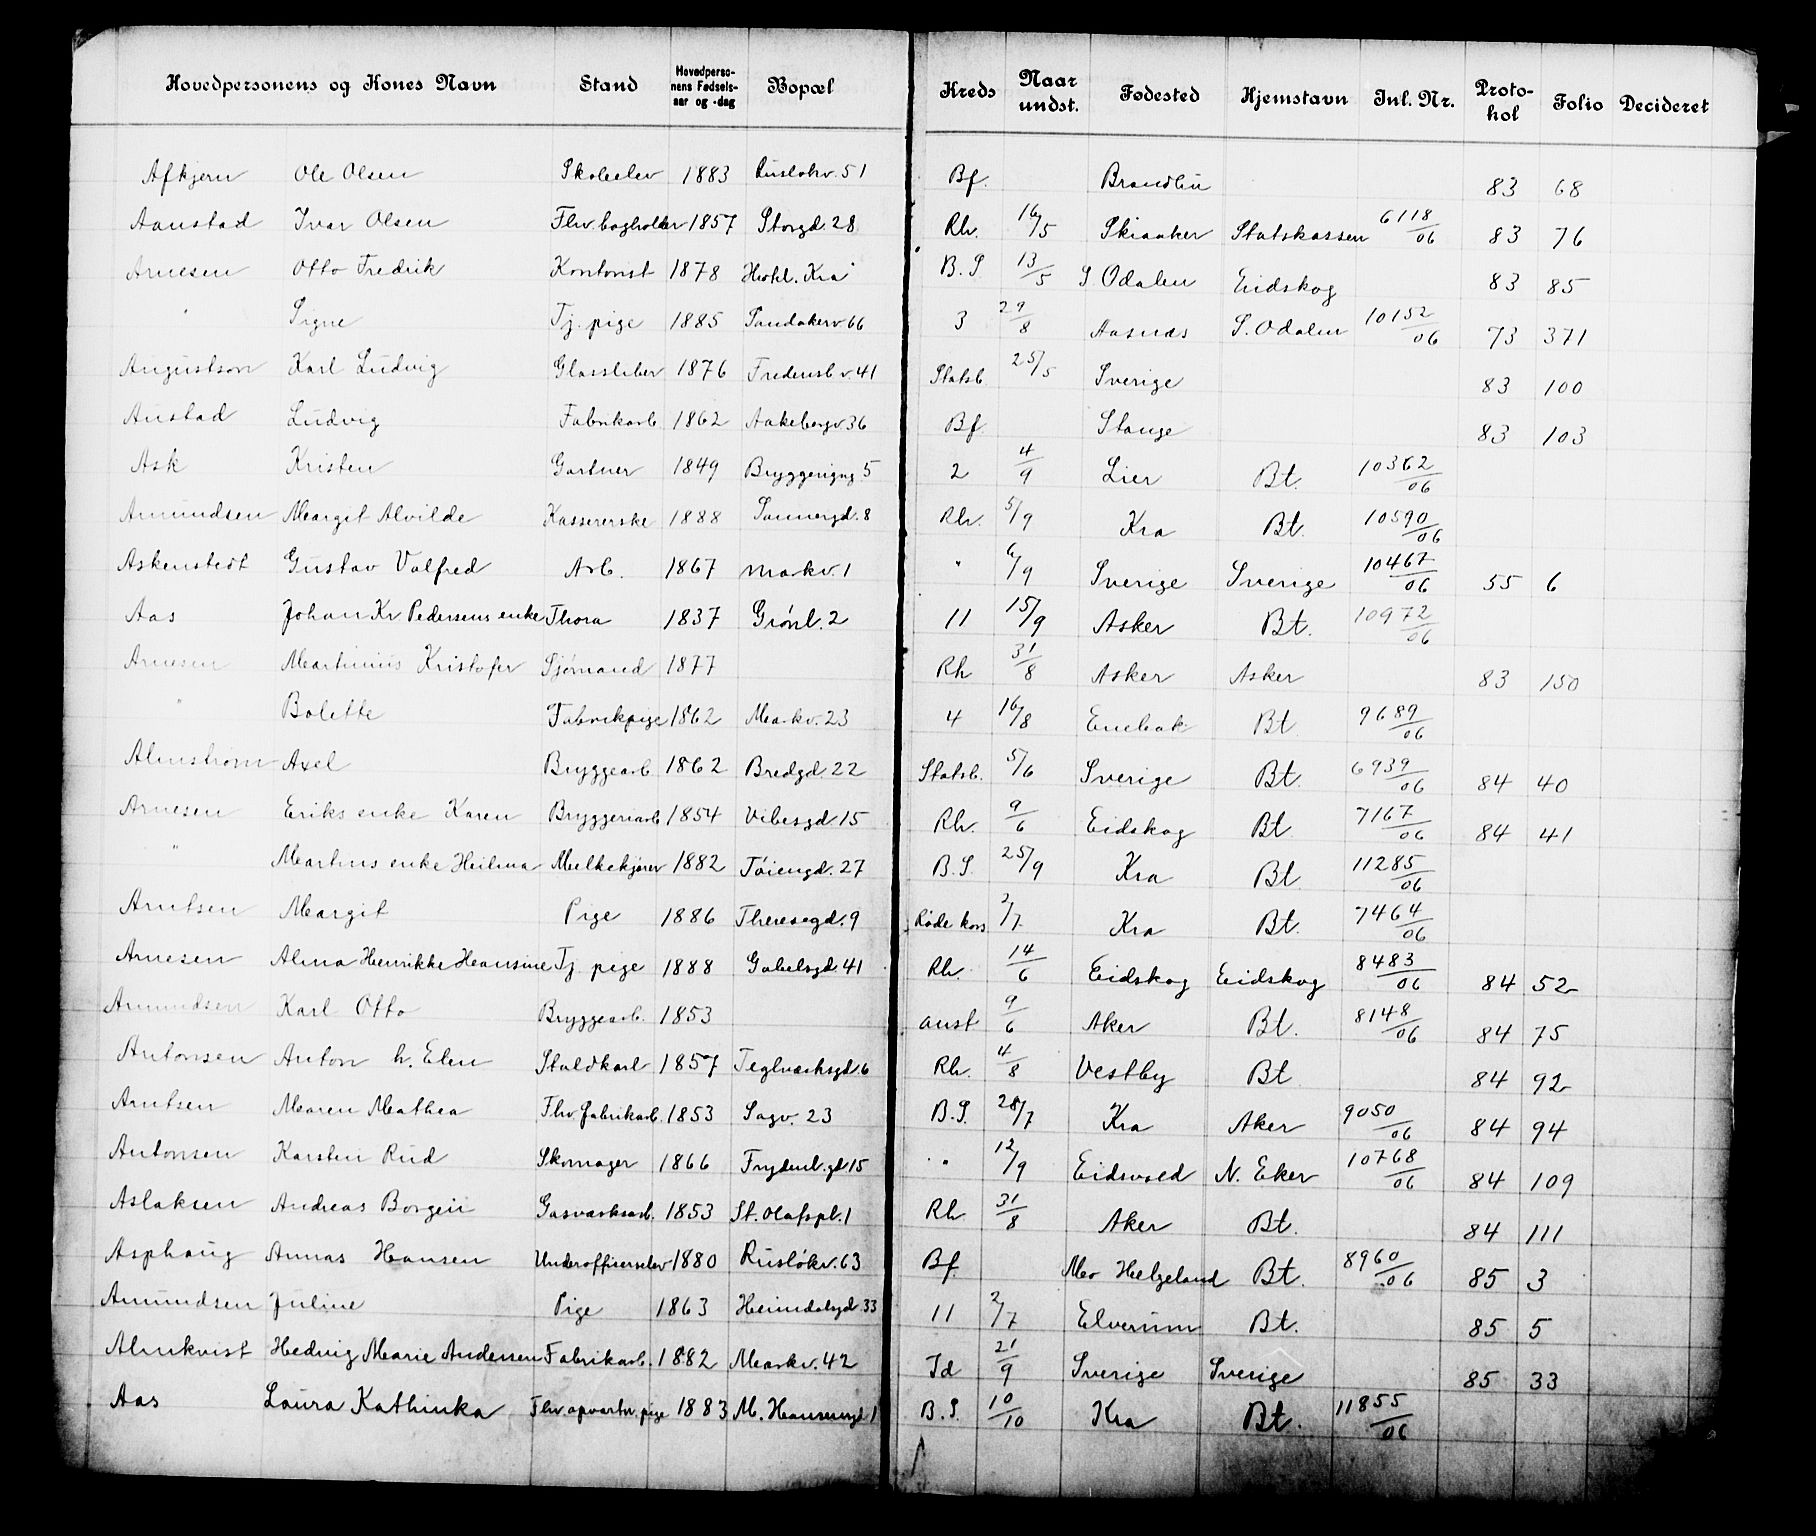 Hovedpersonens og Kones Navn Stand Hovedpersonens Fødselsaar og -dag Bopæl Kreds Naar undst. Fødested Hjemstavn Inl. Nr. Protokol Folio Decideret
Afkjern Ole Olsen Skoleelev 1883 Rusløkv. 51 Bf. Brandbu 83 68
Aanstad Ivar Olsen Fhv. bogholder 1857 Storgd. 28 Rh. 16/5 Skiaaker Statskassen 6118/06 83 76
Arnesen Otto Fredrik Kontorist 1878 Hotel. Kra B.S. 13/5 S. Odalen Eidskog 83 85
" Signe Tj. pige 1885 Sandakerv. 66 3 29/8 Aasnes S. Odalen 10152/06 73 371
Augustson Karl Ludvig Glassliber 1876 Fredensb.v. 41 Statsb. 25/5 Sverige 83 100
Austad Ludvig Fabrikarb. 1862 Aakebergv. 36 Bf. Stange 83 103
Ask Kristen Gartner 1849 Bryggerigng 5 2 4/9 Lier Bt. 10362/06
Amundsen Margit Alvilde Kassererske 1888 Sannergd. 8 Rh. 5/9 Kra Bt. 10590/06
Askenstedt Gustav Valfred Arb. 1867 Markv. 1 " 6/9 Sverige Sverige 10467/06 55 6
Aas Johan Kr Pedersens enke Thora 1837 Grønl. 2 11 15/9 Asker Bt. 10972/06
Arnesen Martinius Kristofer Sjømand 1877 Rh 31/8 Asker Asker 83 150
" Bolette Fabrikpige 1862 Markv. 23 4 16/8 Enebak Bt. 9689/06
Almstrøm Axel Bryggearb. 1862 Bredgd. 22 Statsb. 5/6 Sverige Bt. 6939/06 84 40
Arnesen Eriks enke Karen Bryggeriarb 1854 Vibesgd. 15 Rh. 9/6 Eidskog Bt 7167/06 84 41
" Martins enke Helma Melkekjører 1882 Tøiengd. 27 B.S. 25/9 Kra Bt 11285/06
Arntsen Margit Pige 1886 Theresegd. 9 Røde kors 2/7 Kra Bt. 7464/06
Arnesen Alma Henrikke Hansine Tj. pige 1888 Gabelsgd. 41 Rh. 14/6 Eidskog Eidskog 8483/06 84 52
Amundsen Karl Otto Bryggearb. 1853 anst 9/6 Aker Bt. 8148/06 84 75
Antonsen Anton h. Elen Staldkarl 1857 Teglverksgd. 6 Rh. 4/8 Vestby Bt 84 92
Arntsen Maren Mathea Fhv. fabrikarb. 1853 Sagv. 23 B.S. 28/7 Kra Aker 9050/06 84 94
Antonsen Karsten Rud Skomager 1866 Frydenl.gd 15 " 12/9 Eidsvold N. Eker 10768/06 84 109
Aslaksen Andreas Borgen Gasverksarb. 1853 St. Olafspl. 1 Rh 31/8 Aker Bt. 84 111
Asphaug Annas Hansen Underoffiserselev 1880 Rusløkv. 63 Bf. Mo Helgeland Bt. 8960/06 85 3
Amundsen Juline Pige 1863 Heimdalsgd 33 11 2/7 Elverum Bt. 85 5
Almkvist Hedvig Marie Andersen Fabrikarb. 1882 Markv. 42 Id 21/9 Sverige Sverige 85 33
Aas Laura Kathinka Fhv. opvartn. pige 1883 M. Hansensgd 1 B.S. 10/10 Kra Bt. 11855/06